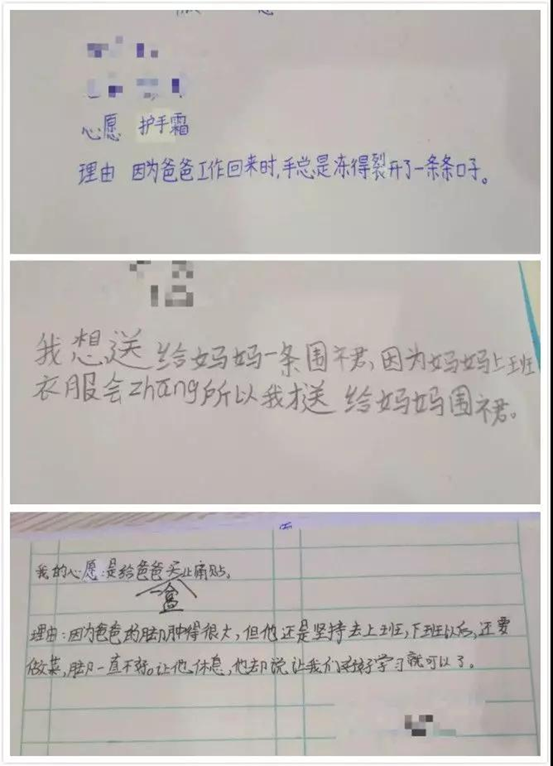 心愿 护手霜
理由 因为爸爸工作回来时,手总是冻得裂开了一条条口子。
我想送给妈妈一条围裙,因为妈妈上班
衣服会zhāng所以我才送给妈妈围裙。
我的心愿:是给爸爸买一盒止痛贴。
理由:因为爸爸的脚肿得很大,但他还是坚持去上班,下班以后,还要
做菜,脚一直不好。让他休息,他却说让我们好好学习就可以了。